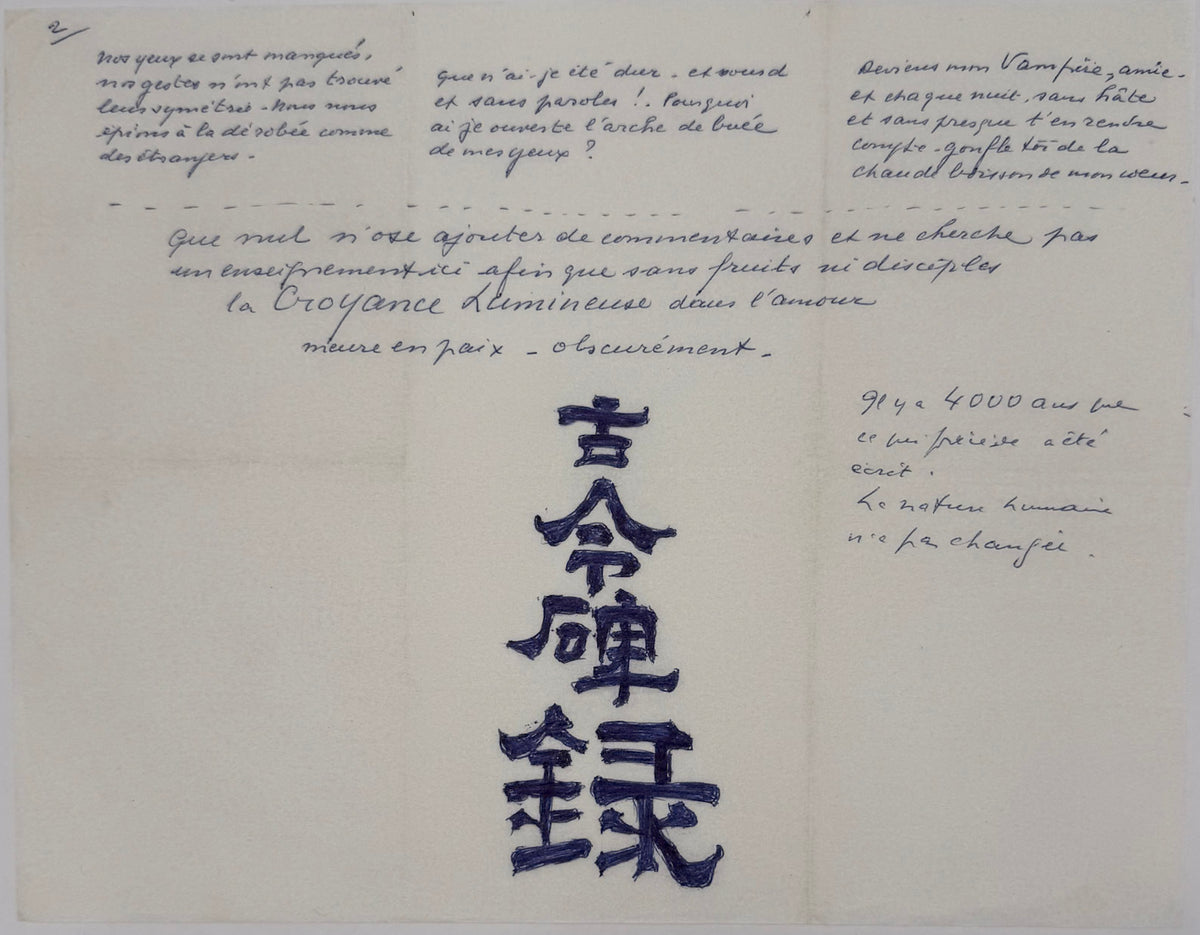 2
Nos yeux se sont manqués,
nos gestes n'ont pas trouvé
leur symétrie - Nous nous
épions à la dérobée comme
des étrangers -
que n'ai-je été dur - et sourd
et sans paroles ! . Pourquoi
ai je ouverte l'arche de buée
de mes yeux ?
Deviens mon Vampire, amie -
et chaque nuit, sans hâte
et sans presque t'en rendre
compte - gonfle toi de la
chaude boisson de mon cœur -
que nul n'ose ajouter de commentaires et ne cherche pas
un enseignement ici afin que sans fruits ni disciples
la Croyance Lumineuse dans l'amour
meure en paix - obscurément -
古
今
碑
録
Il y a 4000 ans que
ce qui précède a été
écrit .
La nature humaine
n'a pas changée .